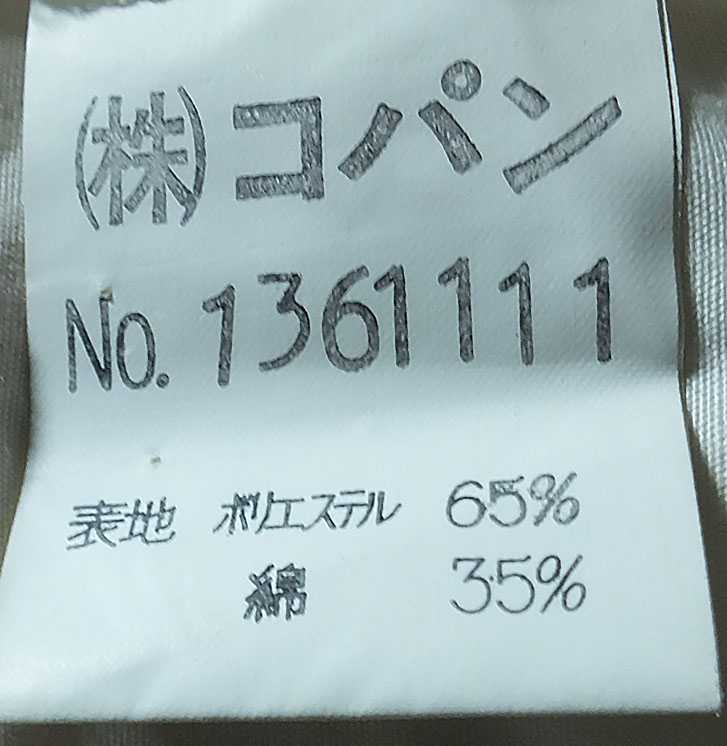 (株)コパン
No. 1361111
表地 ポリエステル 65%
綿 35%